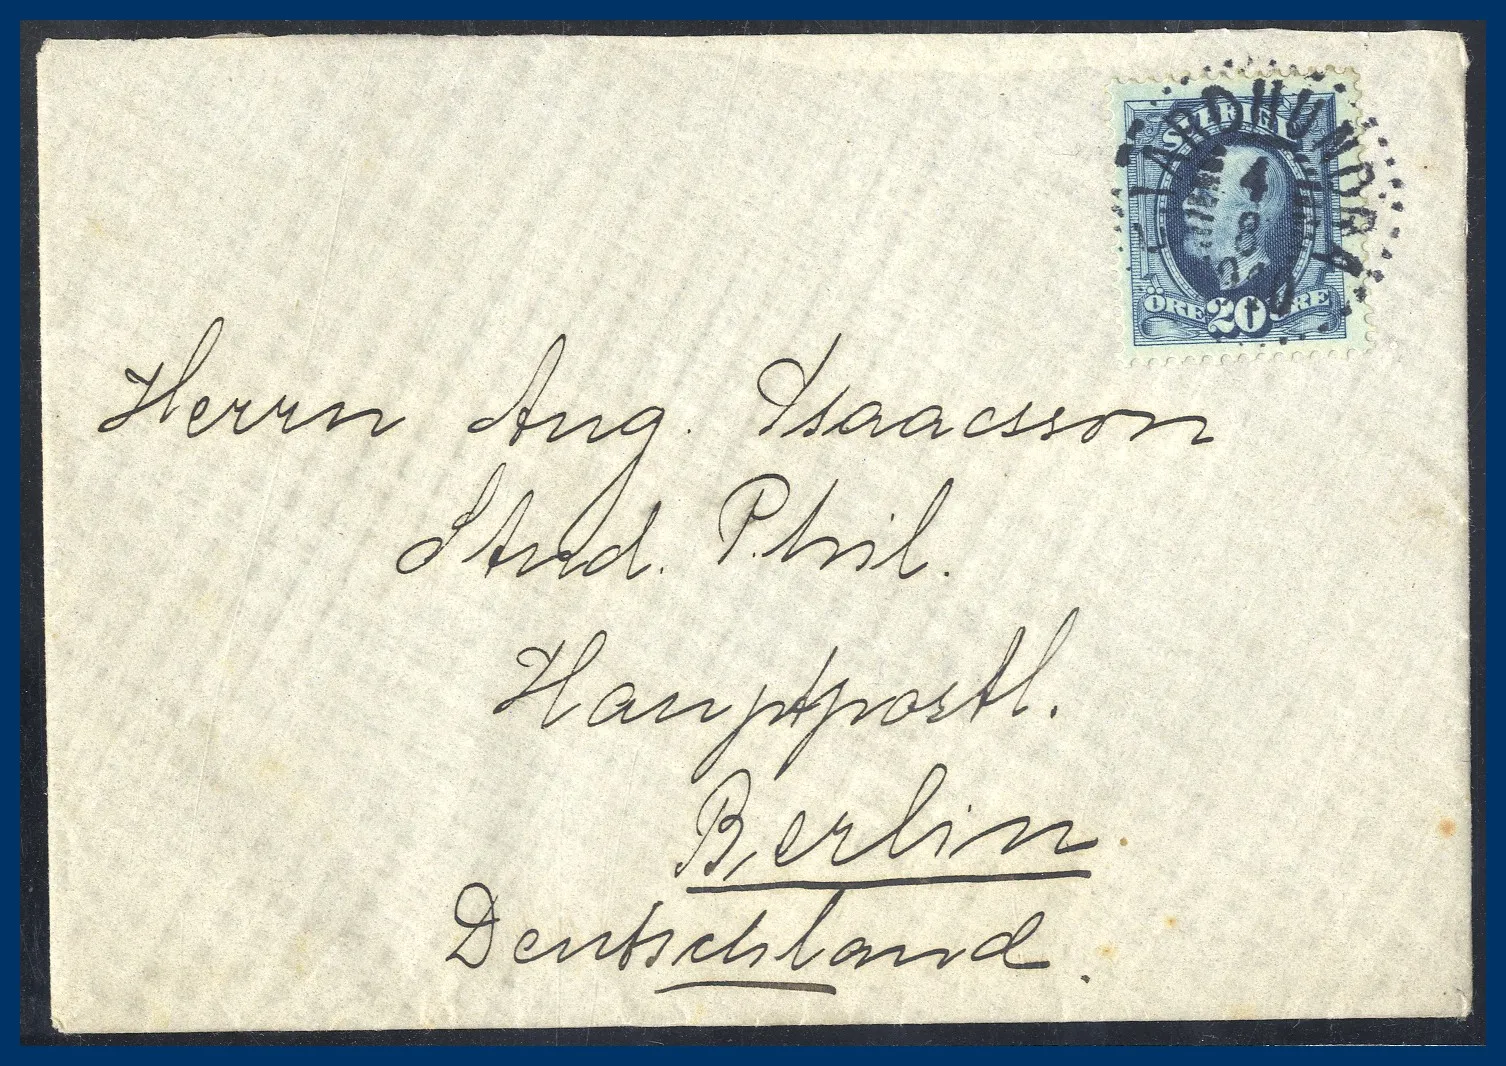 SVERIGE
FJÄRDHUNDRA
4
8
ÖRE 20 ÖRE
Herrn Aug. Isaacsson
Stud. Phil.
Hauptpostl.
Berlin
Deutschland.